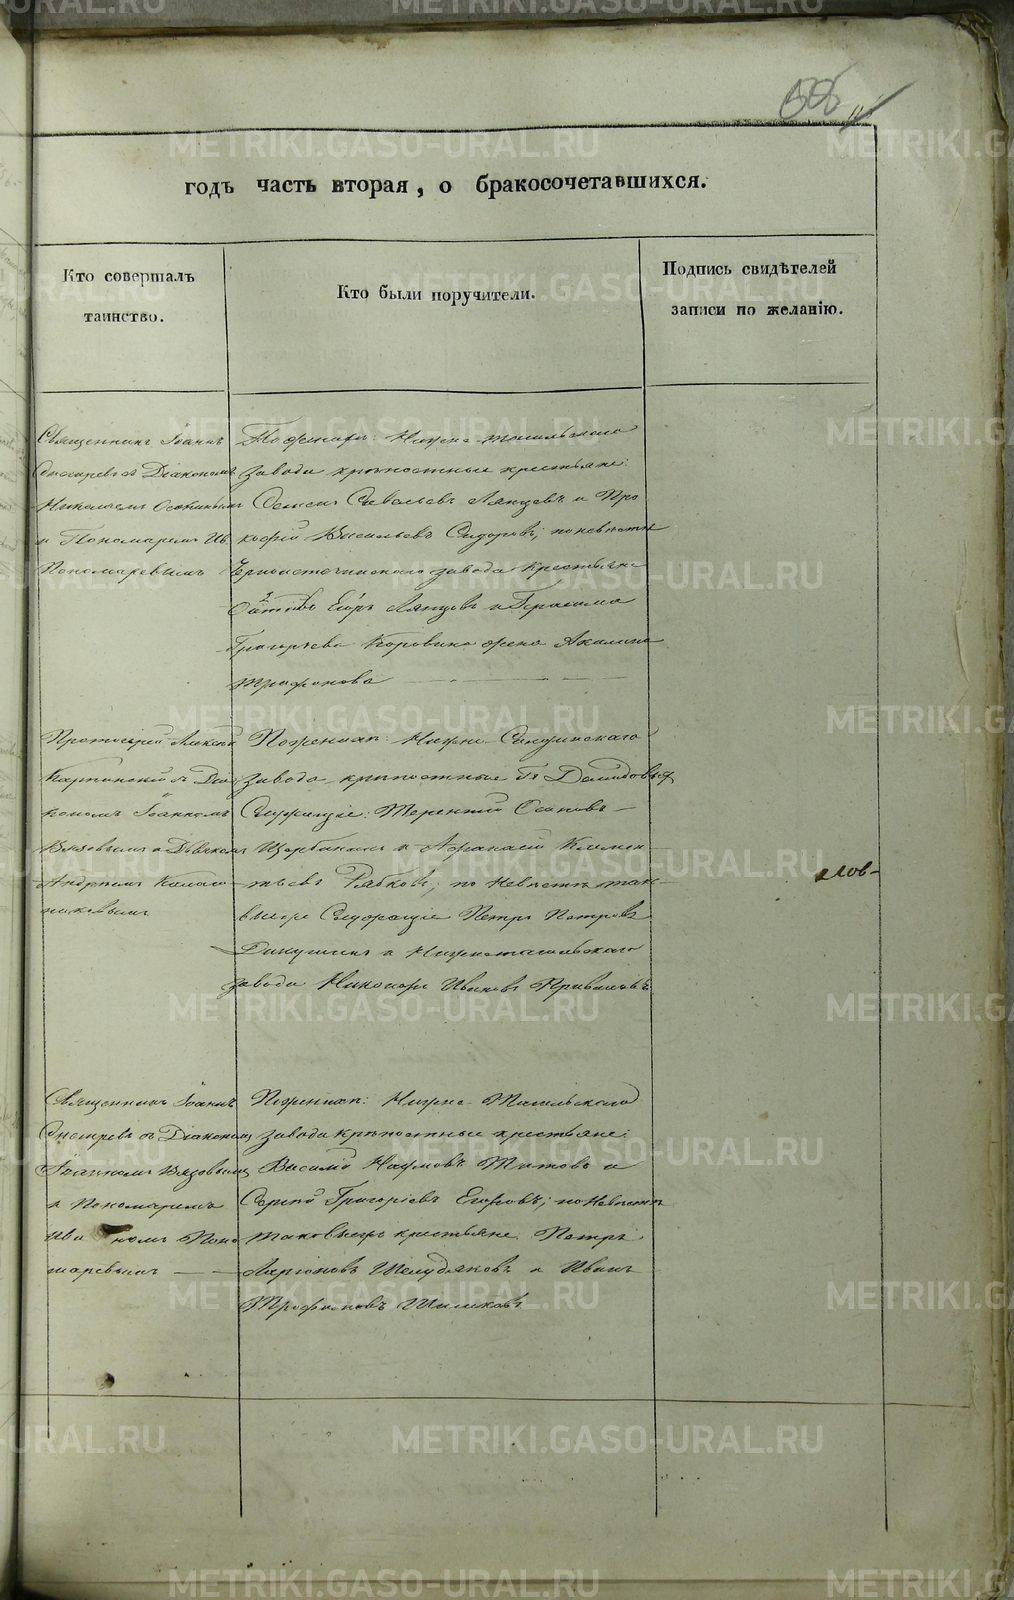 годъ часть вторая, о бракосочетавшихся.
Кто совершалъ
таинство.
Кто были поручители.
Подпись свидѣтелей
записи по желанію.
Священникъ Іоаннъ
съ Діакономъ
Николаемъ
и Пономаремъ Ив.
Пономаревымъ
По женихѣ: Нижне-тагильскаго
завода крѣпостные крестьяне:
Савельевъ Ляпцевъ и Про
кофій Васильевъ Сидоровъ; по невѣстѣ
Черноисточинскаго завода крестьяне
Егоръ Ляпцевъ и Герасима
Григорьева Коровина жена Акилина
Трифонова
Протоіерей Алексѣй
Карпинскій съ Діа
кономъ Іоанномъ
Вязовымъ и Дьячкомъ
Андреемъ
По женихѣ: Нижне-Салдинскаго
завода крѣпостные Гг. Демидовыхъ
Служащіе: Терентій Осиповъ
и Афанасій Климен
тьевъ Рябковъ; по Невѣстѣ так
выеже Служащіе Петръ Петровъ
и Нижнетагильскаго
завода Никаноръ Ивановъ
Священникъ Іоаннъ
съ Діакономъ
Іоанномъ Вязовымъ
и Пономаремъ
Ива номъ Поно
маревымъ
По женихѣ: Нижне-Тагильскаго
завода крѣпостные крестьяне:
Василій Наумовъ Титовъ и
Сергій Григорьевъ Егоровъ; по Невѣстѣ
таковыеже крестьяне Петръ
Ларіоновъ Шелудяковъ и Иванъ
Трифоновъ
METRIKI.GASO-URAL.RU